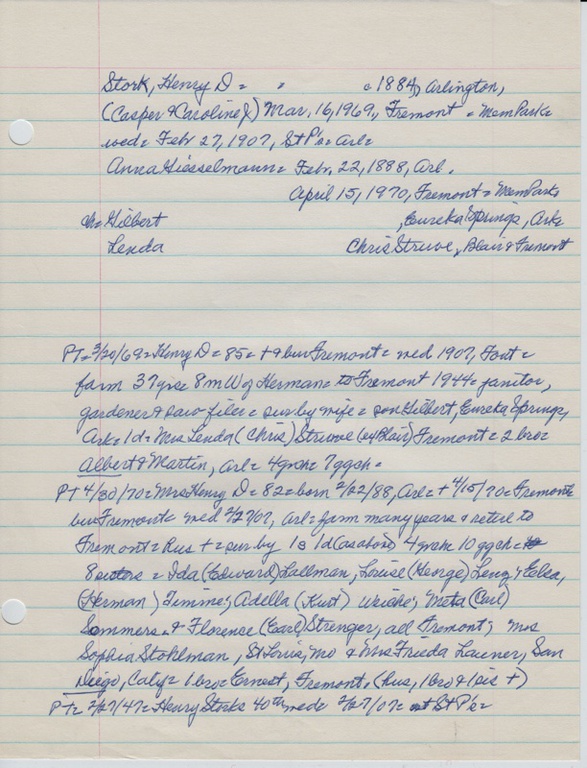 Stork, Henry D = " = 1884, Arlington,
(Casper & Caroline J) Mar, 16, 1969, Fremont = Mem Park =
wed = Feb 27, 1907, St P's = Arl =
Anna Giesselmann = Feb. 22, 1888, Arl.
April 15, 1970, Fremont = Mem Park =
ch = Gilbert , Eureka Springs, Ark
Lenda Chris Struve, Blair & Fremont
PT = 3/20/69 = Henry D = 85 = + & bur Fremont = wed 1907, Font =
farm 37 yrs = 8 m W of Herman = to Fremont 1944 = janitor,
gardener & saw filer = sur by wife = son Gilbert, Eureka Springs,
Ark = 1d = Mrs Lenda (Chris) Struve (of Blair) Fremont = 2 bro =
Albert & Martin, Arl = 4 grch = 7 ggch =
PT 4/30/70 = Mrs Henry D = 82 = born 2/22/88, Arl = + 4/15/70 = Fremont =
bur Fremont = wed 2/27/07, Arl = farm many years & retd to
Fremont = Hus + = sur by 1s 1d (as above) 4 grch 10 ggch =
8 sisters = Ida (Edward) Lallman, Louise (George) Lenz, Elsa,
(Herman) Timine, Adella (Kurt) Weicho, Meta (Carl)
Sommers & Florence (Earl) Strenger, all Fremont, Mrs
Sophia Stohlman, St Louis, Mo & Mrs Frieda Launer, San
Diego, Calif = 1 bro = Ernest, Fremont, (Hus, 1 bro & 1 sis +)
PT = 2/27/47 = Henry Storks 40th, wed 2/27/07 = at St P's =